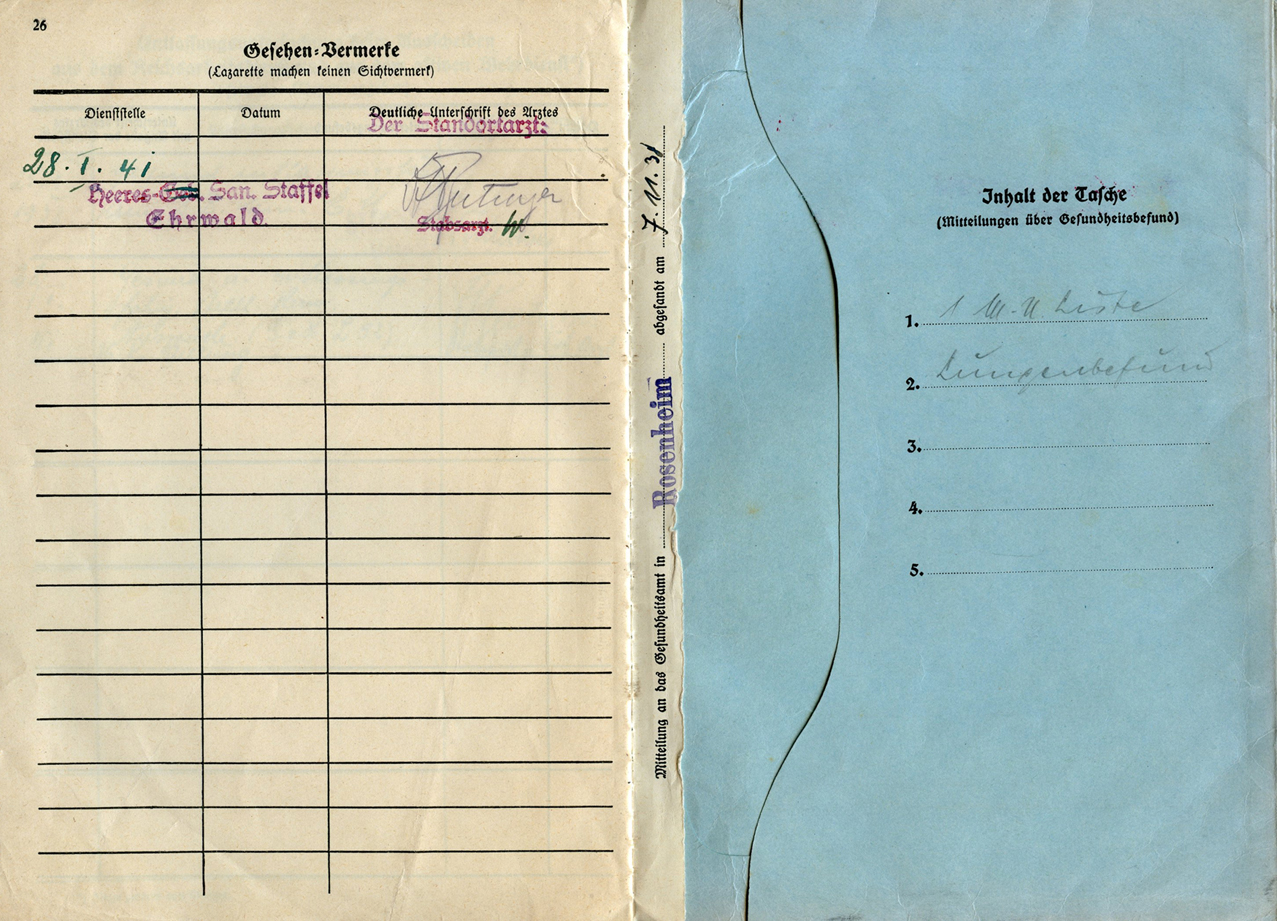 26
Gesehen-Vermerke
(Lazarette machen keinen Sichtvermerk)
Dienststelle Datum Deutliche Unterschrift des Arztes
Der Standortarzt:
28. I. 41
Heeres- San. Staffel
Ehrwald.
Stabsarzt.
Mitteilung an das Gesundheitsamt in Rosenheim abgesandt am 7. 11. 31
Inhalt der Tasche
(Mitteilungen über Gesundheitsbefund)
1. 1 M.-U. Liste
2. Lungenbefund
3.
4.
5.